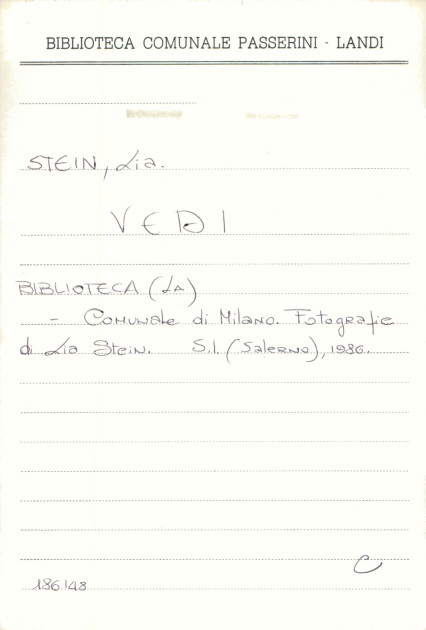 BIBLIOTECA COMUNALE PASSERINI - LANDI
STEIN, Lia.
VEDI
BIBLIOTECA (LA)
- Comunale di Milano. Fotografie
di Lia Stein. S.l. (Salerno), 1986.
C
186148